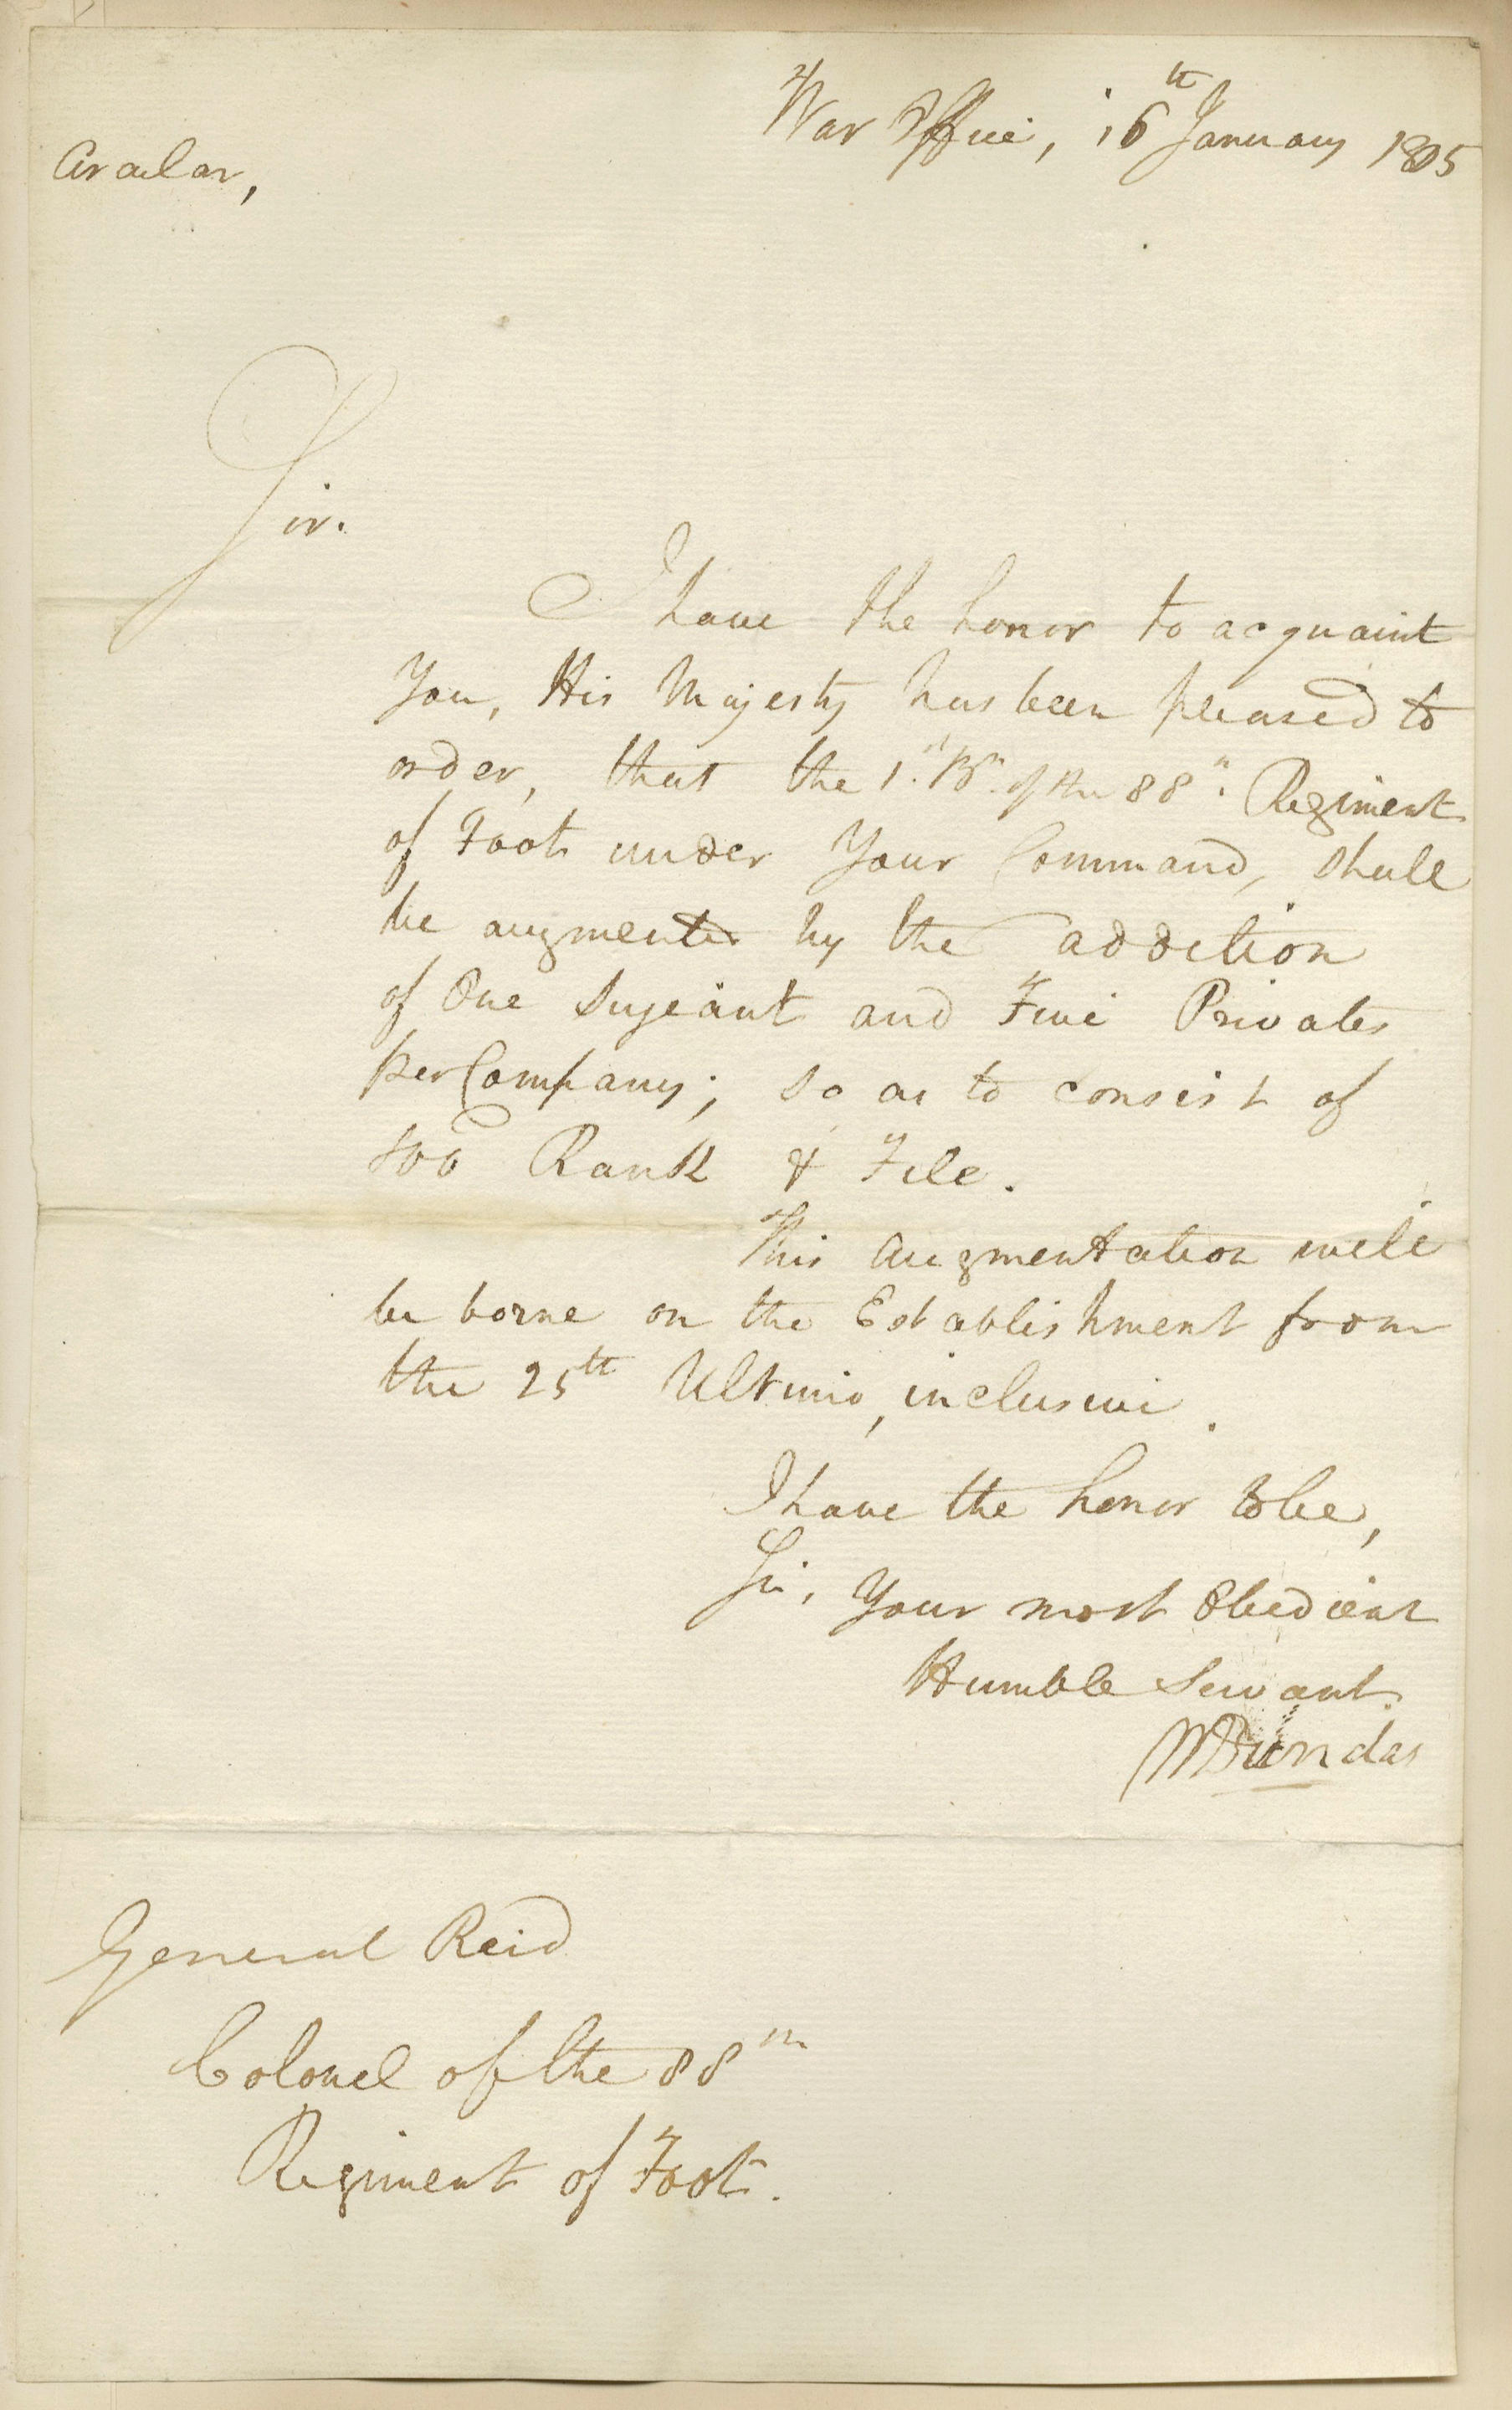 War Office, 16th January 1805
Circular,
Sir.
I have the honor to acquaint
You, His Majesty has been pleased to
order, that the 1st. Bn. of the 88th. Regiment
of Foot under Your Command, shall
be augmented by the addition
of One Serjeant and Five Privates
per Company; so as to consist of
Rank & File.
This Augmentation will
be borne on the Establishment from
the 25th Ultimo, inclusive.
I have the honor to be,
Sir, Your most Obedient
Humble Servant.
W Dundas
General Reid
Colonel of the 88th
Regiment of Foot.